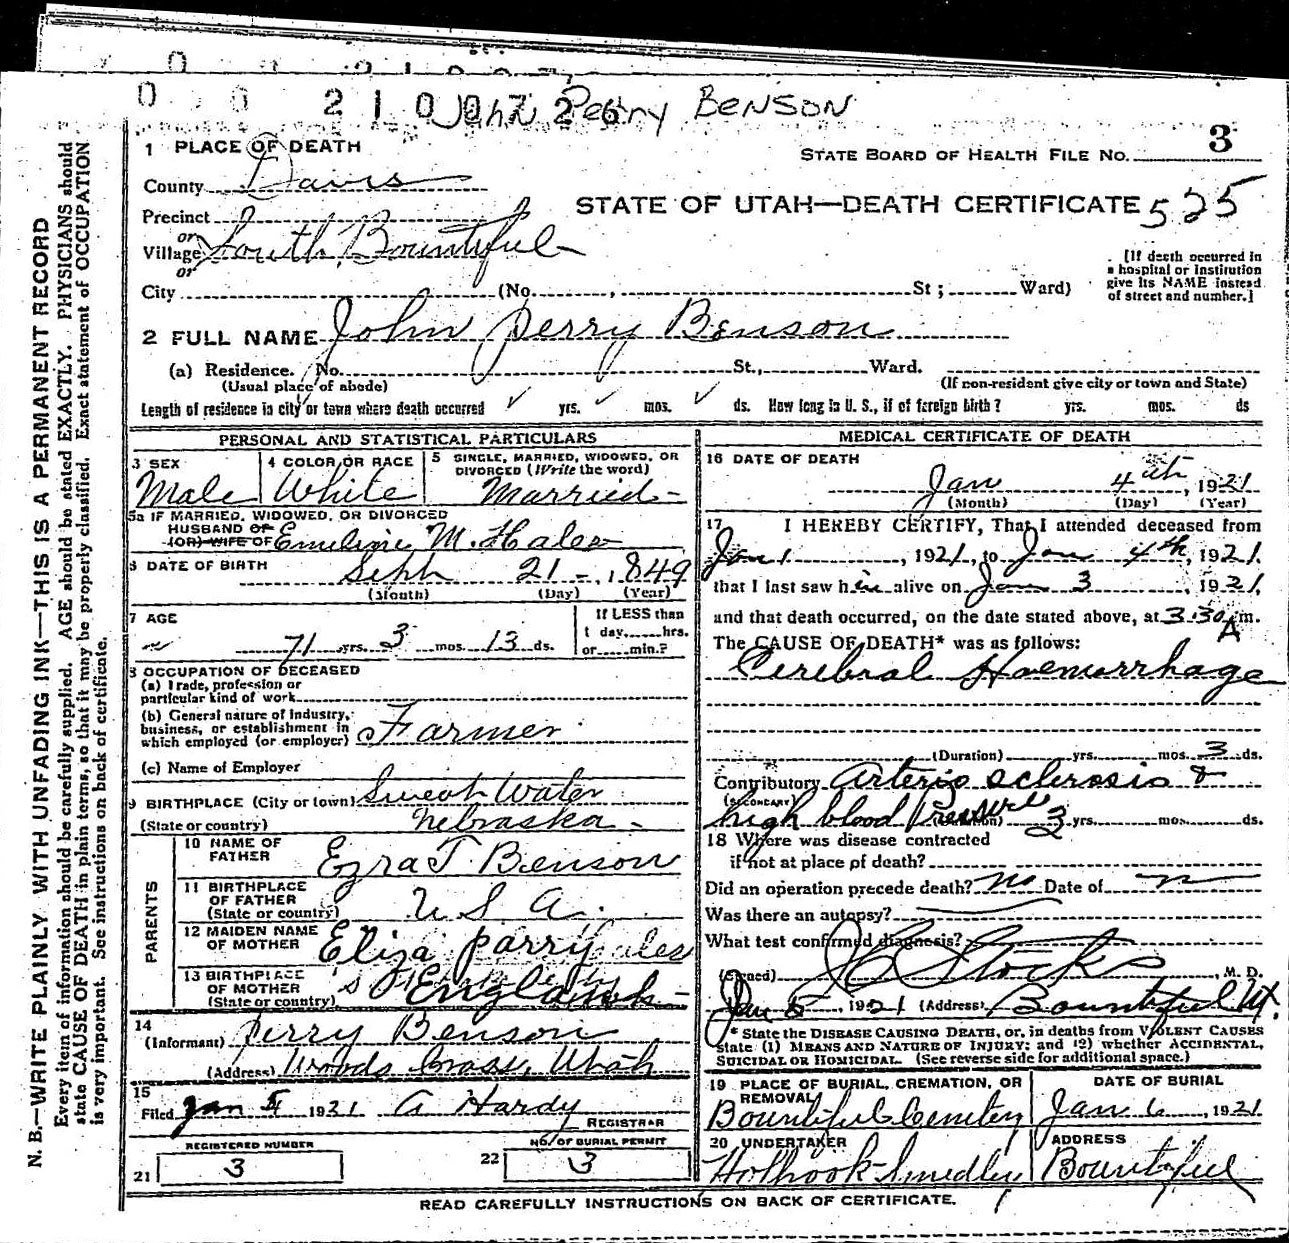 0 0 2 1 0 0 7 2 6
John Perry BENSON
3
1 PLACE OF DEATH
STATE BOARD OF HEALTH FILE NO.
County Davis
STATE OF UTAH—DEATH CERTIFICATE 525
Precinct
or
Village South Bountiful
or
City (No. , St ; Ward)
[If death occurred in
a hospital or institution
give its NAME instead
of street and number.]
2 FULL NAME John Perry Benson
(a) Residence. No. St., Ward.
(Usual place of abode) (If non-resident give city or town and State)
Length of residence in city or town where death occurred yrs. mos. ds. How long in U. S., if of foreign birth? yrs. mos. ds
PERSONAL AND STATISTICAL PARTICULARS
3 SEX
Male
4 COLOR OR RACE
White
5 SINGLE, MARRIED, WIDOWED, OR
DIVORCED (Write the word)
Married
5a IF MARRIED, WIDOWED, OR DIVORCED
HUSBAND OF
(OR) WIFE OF Emeline M. Hales
6 DATE OF BIRTH Sept 21 - , 1849
(Month) (Day) (Year)
7 AGE
71 yrs. 3 mos. 13 ds.
If LESS than
1 day, hrs.
or min.?
8 OCCUPATION OF DECEASED
(a) Trade, profession or
particular kind of work
(b) General nature of industry,
business, or establishment in
which employed (or employer) Farmer
(c) Name of Employer
9 BIRTHPLACE (City or town) Sweet Water
(State or country) Nebraska -
PARENTS
10 NAME OF
FATHER Ezra T. Benson
11 BIRTHPLACE
OF FATHER
(State or country) U S A.
12 MAIDEN NAME
OF MOTHER Eliza Parry
13 BIRTHPLACE
OF MOTHER
(State or country) England
14
(Informant) Perry Benson
(Address) Woods Cross, Utah
15
Filed Jan 5 1921 A Hardy
REGISTRAR
REGISTERED NUMBER
21 3
NO. OF BURIAL PERMIT
22 3
MEDICAL CERTIFICATE OF DEATH
16 DATE OF DEATH
Jan 4th, 1921
(Month) (Day) (Year)
17 I HEREBY CERTIFY, That I attended deceased from
Jan 1, 1921, to Jan 4th, 1921.
that I last saw him alive on Jan 3, 1921,
and that death occurred, on the date stated above, at 3:30 A m.
The CAUSE OF DEATH* was as follows:
Cerebral Haemorrhage
(Duration) yrs. mos. 3 ds.
Contributory Arterio sclerosis &
(SECONDARY)
high blood Pressure 3 yrs. mos. ds.
18 Where was disease contracted
if not at place of death?
Did an operation precede death? No Date of
Was there an autopsy?
What test confirmed diagnosis?
(Signed) J C Stocks, M. D.
Jan 5, 1921 (Address) Bountiful Ut.
* State the DISEASE CAUSING DEATH, or, in deaths from VIOLENT CAUSES
state (1) MEANS AND NATURE OF INJURY; and (2) whether ACCIDENTAL,
SUICIDAL OR HOMICIDAL. (See reverse side for additional space.)
19 PLACE OF BURIAL, CREMATION, OR
REMOVAL
Bountiful Cemetery
DATE OF BURIAL
Jan 6, 1921
20 UNDERTAKER
Holbrook-Smedley
ADDRESS
Bountiful
READ CAREFULLY INSTRUCTIONS ON BACK OF CERTIFICATE.
N. B.—WRITE PLAINLY WITH UNFADING INK—THIS IS A PERMANENT RECORD
Every item of information should be carefully supplied. AGE should be stated EXACTLY. PHYSICIANS should
state CAUSE OF DEATH in plain terms, so that it may be properly classified. Exact statement of OCCUPATION
is very important. See instructions on back of certificate.